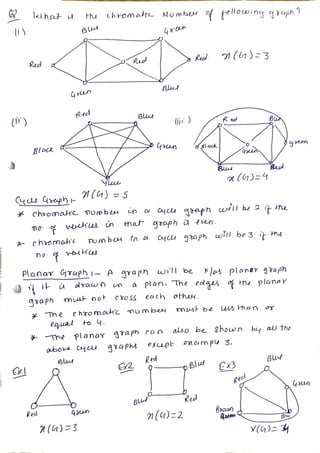 Q What is the chromatic Number of following graph?
(i)
Blue Green
Red Red Red
Green Blue
X(G)=3
(ii)
Red
Blue
Black
Green
X(G) = 5
(iii)
Red Blue
Black Green Green
Blue Red
X(G)=4
Cycle Graph:-
* chromatic number in a cycle graph will be 2 if the
no of vertices in that graph is even.
* chromatic number in a cycle graph will be 3 if the
no of vertices
Planar Graph:- A graph will be planar graph
if it is drawn in a plan. The edges of the planar
graph must not cross each other.
* The chromatic number must be less than or
equal to 4.
* The planar graph can also be shown by all the
above cycle graphs except example 3.
Ex1
Blue
Red Green
X(G)=3
Ex2
Red Blue
Blue Red
X(G)=2
Ex3
Blue
Red Green
Brown